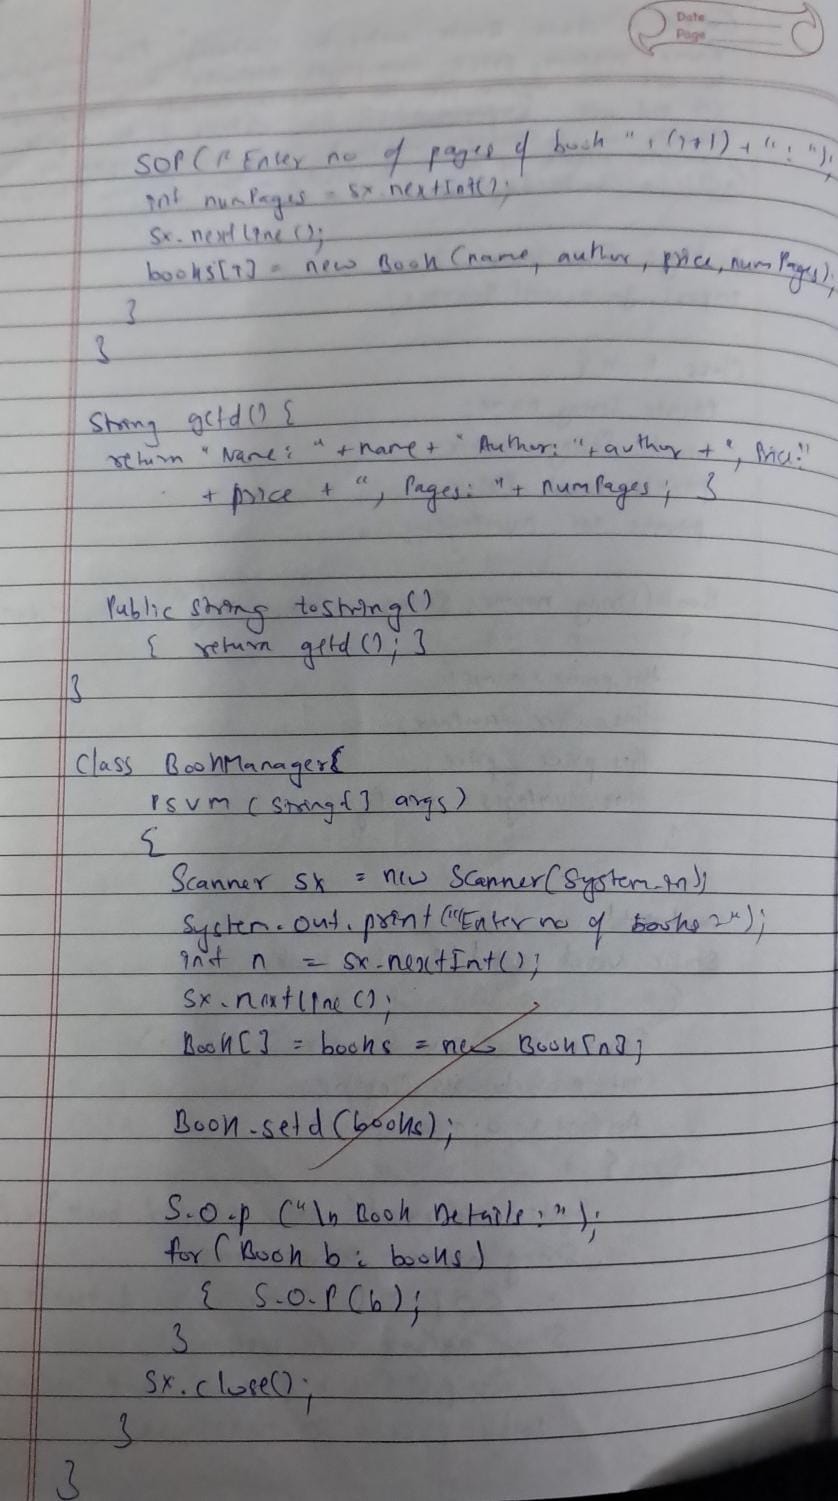 Date
Page
SOP(" Enter no of pages of book " + (i+1) + " : ");
int numPages = sx.nextInt();
sx.nextline();
books[i] = new Book (name, author, price, numPages);
}
}
String getd() {
return "Name: " + name + " Author: " + author + ", Price:"
+ price + ", Pages: " + numPages; }
Public string tostring()
{ return getd(); }
}
Class BookManager{
PSVM (string[] args)
{
Scanner sx = new Scanner(System.in);
System.out.print("Enter no of books :");
int n = sx.nextInt();
sx.nextline();
Book[] = books = new Book[n];
Book.setd(books);
S.O.p ("\n Book Details:");
for (Book b : books)
{ S.O.P(b);
}
sx.close();
}
}